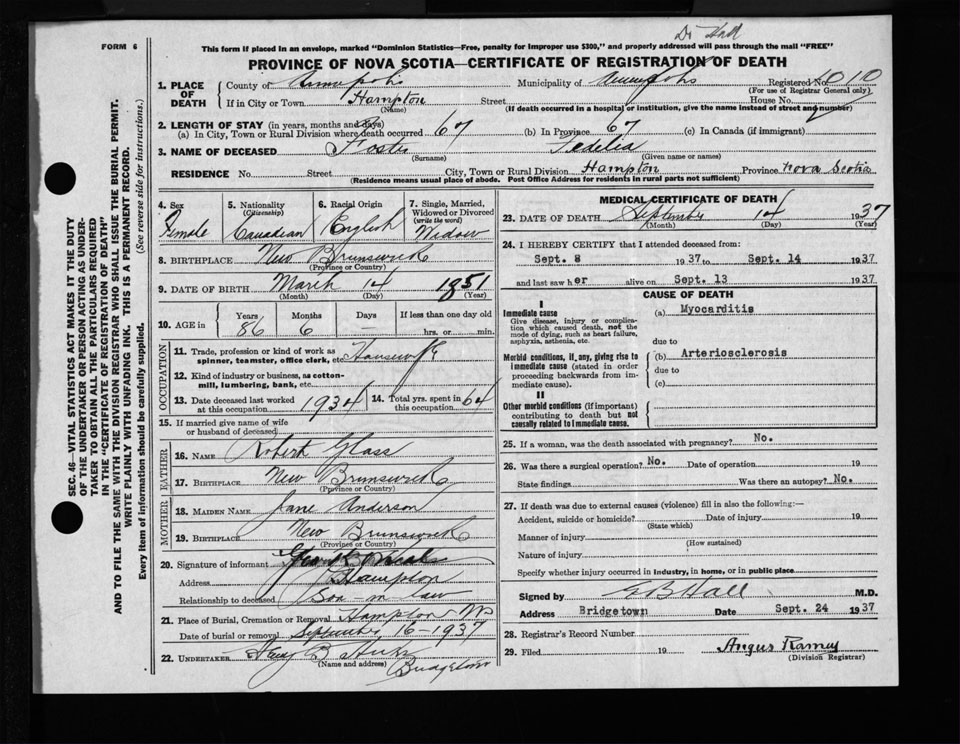 Dr Hall
FORM 6
This form if placed in an envelope, marked "Dominion Statistics—Free, penalty for improper use $300," and properly addressed will pass through the mail "FREE"
PROVINCE OF NOVA SCOTIA—CERTIFICATE OF REGISTRATION OF DEATH
1. PLACE OF DEATH County of Annapolis Municipality of Annapolis Registered No. 1010
(For use of Registrar General only)
If in City or Town Hampton Street House No.
(Name) (If death occurred in a hospital or institution, give the name instead of street and number)
2. LENGTH OF STAY (in years, months and days)
(a) In City, Town or Rural Division where death occurred 67 (b) In Province 67 (c) In Canada (if immigrant)
3. NAME OF DECEASED Foster Fedelia
(Surname) (Given name or names)
RESIDENCE No. Street City, Town or Rural Division Hampton Province Nova Scotia
(Residence means usual place of abode. Post Office Address for residents in rural parts not sufficient)
SEC. 46—VITAL STATISTICS ACT MAKES IT THE DUTY
OF THE UNDERTAKER OR PERSON ACTING AS UNDER-
TAKER TO OBTAIN ALL THE PARTICULARS REQUIRED
IN THE "CERTIFICATE OF REGISTRATION OF DEATH"
AND TO FILE THE SAME WITH THE DIVISION REGISTRAR WHO SHALL ISSUE THE BURIAL PERMIT.
WRITE PLAINLY WITH UNFADING INK. THIS IS A PERMANENT RECORD.
Every item of information should be carefully supplied. (See reverse side for instructions.)
4. Sex 5. Nationality 6. Racial Origin 7. Single, Married,
(Citizenship) Widowed or Divorced
(write the word)
Female Canadian English Widow
8. BIRTHPLACE New Brunswick
(Province or Country)
9. DATE OF BIRTH March 14 1851
(Month) (Day) (Year)
10. AGE in Years Months Days If less than one day old
86 6 hrs. or min.
OCCUPATION
11. Trade, profession or kind of work as
spinner, teamster, office clerk, etc. Housewife
12. Kind of industry or business, as cotton-
mill, lumbering, bank, etc.
13. Date deceased last worked
at this occupation 1934
14. Total yrs. spent in
this occupation 64
15. If married give name of wife
or husband of deceased
FATHER
16. NAME Robert Glass
17. BIRTHPLACE New Brunswick
(Province or Country)
MOTHER
18. MAIDEN NAME Jane Anderson
19. BIRTHPLACE New Brunswick
(Province or Country)
20. Signature of informant
Address Hampton
Relationship to deceased Son-in law
21. Place of Burial, Cremation or Removal Hampton NS
Date of burial or removal September 16-1937
22. UNDERTAKER
(Name and address) Bridgetown
MEDICAL CERTIFICATE OF DEATH
23. DATE OF DEATH September 14 1937
(Month) (Day) (Year)
24. I HEREBY CERTIFY that I attended deceased from:
Sept. 8 1937 to Sept. 14 1937
and last saw her alive on Sept. 13 1937
CAUSE OF DEATH
I
Immediate cause (a) Myocarditis
Give disease, injury or complica-
tion which caused death, not the
mode of dying, such as heart failure,
asphyxia, asthenia, etc.
due to
Morbid conditions, if any, giving rise to (b) Arteriosclerosis
immediate cause (stated in order
proceeding backwards from im-
mediate cause).
due to
(c)
II
Other morbid conditions (if important)
contributing to death but not
causally related to immediate cause.
25. If a woman, was the death associated with pregnancy? No.
26. Was there a surgical operation? No. Date of operation 19
State findings Was there an autopsy? No.
27. If death was due to external causes (violence) fill in also the following:—
Accident, suicide or homicide? Date of injury 19
(State which)
Manner of injury
(How sustained)
Nature of injury
Specify whether injury occurred in industry, in home, or in public place
Signed by E B Hall M.D.
Address Bridgetown Date Sept. 24 1937
28. Registrar's Record Number
29. Filed 19 Angus Ramey
(Division Registrar)